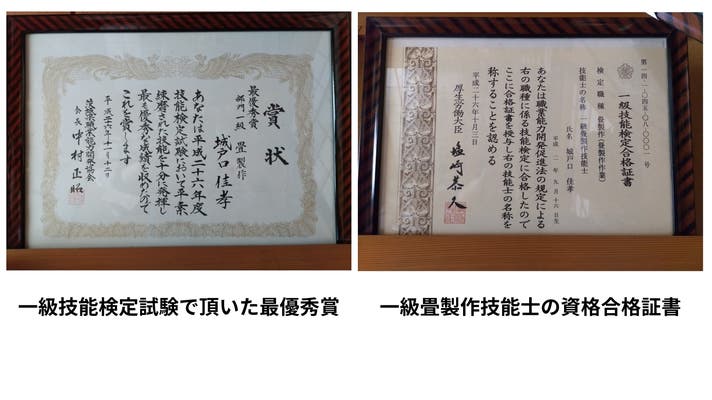 賞状
最優秀賞
部門一級 畳製作
城戸口 佳孝
あなたは平成二十六年度
技能検定試験において平素
練磨された技能を十分に発揮し
最も優秀な成績を収めたので
これを賞します
平成二十六年十一月二十二日
会長 中村正
第一四-一-〇四五-〇八-〇〇〇一号
一級技能検定合格証書
検定職種 畳製作(畳製作作業)
技能士の名称 一級畳製作技能士
氏名 城戸口 佳孝
あなたは職業能力開発促進法の規定による
右の職種に係る技能検定に合格したので
ここに合格証書を授与し右の技能士の名称を
称することを認める
平成二十六年十月三日
厚生労働大臣 塩崎恭久
一級技能検定試験で頂いた最優秀賞
一級畳製作技能士の資格合格証書